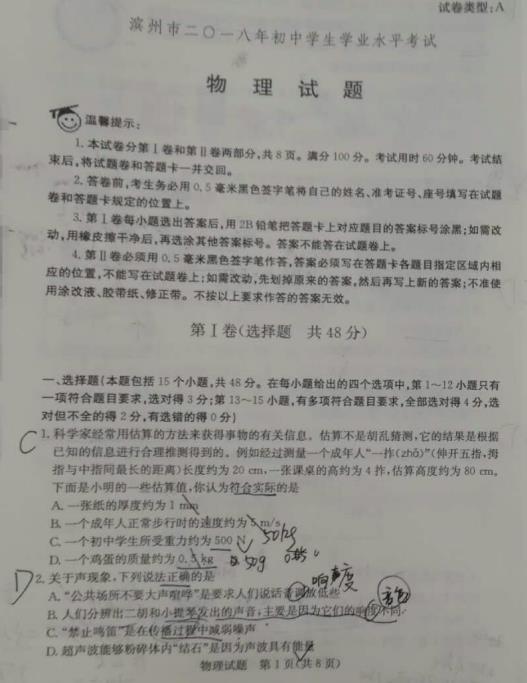 试卷类型:A
滨州市二〇一八年初中学生学业水平考试
物 理 试 题
温馨提示:
1.本试卷分第Ⅰ卷和第Ⅱ卷两部分,共8页。满分100分。考试用时60分钟。考试结
束后,将试题卷和答题卡一并交回。
2.答卷前,考生务必用0.5毫米黑色签字笔将自己的姓名、准考证号、座号填写在试题
卷和答题卡规定的位置上。
3.第Ⅰ卷每小题选出答案后,用2B铅笔把答题卡上对应题目的答案标号涂黑;如需改
动,用橡皮擦干净后,再选涂其他答案标号。答案不能答在试题卷上。
4.第Ⅱ卷必须用0.5毫米黑色签字笔作答,答案必须写在答题卡各题目指定区域内相
应的位置,不能写在试题卷上;如需改动,先划掉原来的答案,然后再写上新的答案;不准使
用涂改液、胶带纸、修正带。不按以上要求作答的答案无效。
第Ⅰ卷(选择题 共48分)
一、选择题(本题包括15个小题,共48分。在每小题给出的四个选项中,第1~12小题只有
一项符合题目要求,选对得3分;第13~15小题,有多项符合题目要求,全部选对得4分,选
对但不全的得2分,有选错的得0分)
C 1.科学家经常用估算的方法来获得事物的有关信息。估算不是胡乱猜测,它的结果是根据
已知的信息进行合理推测得到的。例如经过测量一个成年人“一拃(zhǎ)”(伸开五指,拇
指与中指间最长的距离)长度约为20 cm,一张课桌的高约为4拃,估算高度约为80 cm。
下面是小明的一些估算值,你认为符合实际的是
A.一张纸的厚度约为1 mm
B.一个成年人正常步行时的速度约为5 m/s
C.一个初中学生所受重力约为500 N 50kg
D.一个鸡蛋的质量约为0.5 kg 50g
D 2.关于声现象,下列说法正确的是 响度
A.“公共场所不要大声喧哗”是要求人们说话音调放低些 音色
B.人们分辨出二胡和小提琴发出的声音,主要是因为它们的响度不同
C.“禁止鸣笛”是在传播过程中减弱噪声
D.超声波能够粉碎体内“结石”是因为声波具有能量
物理试题 第1页(共8页)